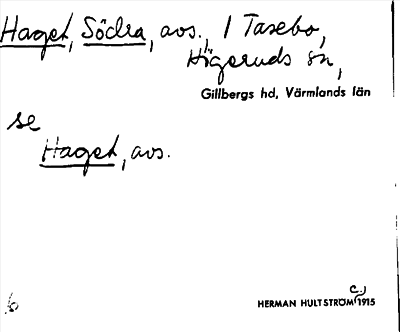 Haget, Södra, avs., 1 Tasebo,
Högeruds sn,
Gillbergs hd, Värmlands län
se
Haget, avs.
HERMAN HULTSTRÖM 1915